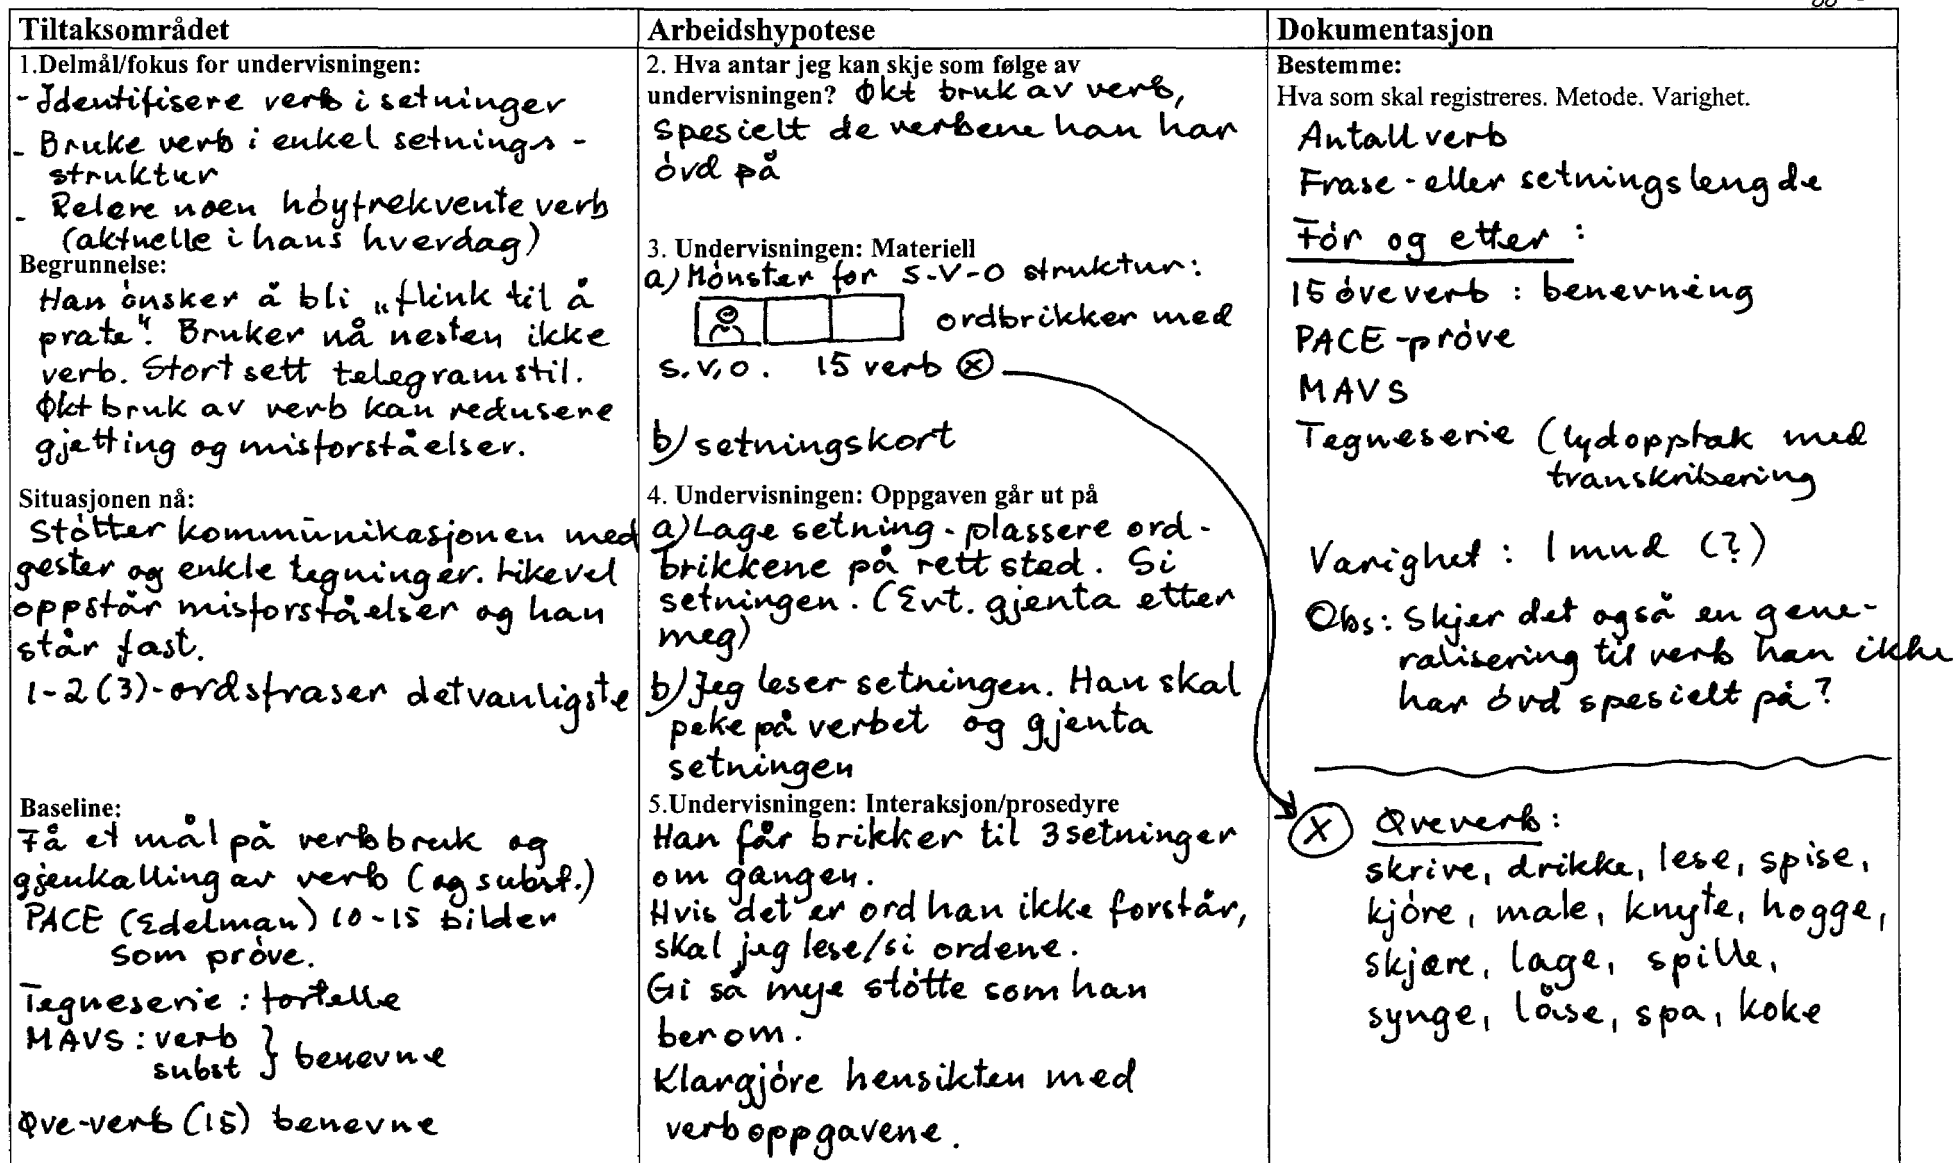 Tiltaksområdet
1.Delmål/fokus for undervisningen:
- Identifisere verb i setninger
- Bruke verb i enkel setnings-
struktur
- Relære noen høyfrekvente verb
(aktuelle i hans hverdag)
Begrunnelse:
Han ønsker å bli „flink til å
prate“. Bruker nå nesten ikke
verb. Stort sett telegramstil.
Økt bruk av verb kan redusere
gjetting og misforståelser.
Situasjonen nå:
Støtter kommunikasjonen med
gester og enkle tegninger. Likevel
oppstår misforståelser og han
står fast.
1-2(3)-ordsfraser det vanligste
Baseline:
Få et mål på verbbruk og
gjenkalling av verb (og subst.)
PACE (Edelman) 10-15 bilder
som prøve.
Tegneserie : fortelle
MAVS : verb
subst } benevne
Øve-verb (15) benevne
Arbeidshypotese
2. Hva antar jeg kan skje som følge av
undervisningen? Økt bruk av verb,
spesielt de verbene han har
øvd på
3. Undervisningen: Materiell
a) Mønster for S-V-O struktur:
ordbrikker med
s.v.o. 15 verb ⊗
b) setningskort
4. Undervisningen: Oppgaven går ut på
a) Lage setning - plassere ord-
brikkene på rett sted. Si
setningen. (Evt. gjenta etter
meg)
b) Jeg leser setningen. Han skal
peke på verbet og gjenta
setningen
5.Undervisningen: Interaksjon/prosedyre
Han får brikker til 3 setninger
om gangen.
Hvis det er ord han ikke forstår,
skal jeg lese/si ordene.
Gi så mye støtte som han
ber om.
Klargjøre hensikten med
verboppgavene.
Dokumentasjon
Bestemme:
Hva som skal registreres. Metode. Varighet.
Antall verb
Frase- eller setningslengde
Før og etter :
15 øveverb : benevning
PACE-prøve
MAVS
Tegneserie (lydopptak med
transkribering
Varighet : 1 mnd (?)
Obs: Skjer det også en gene-
ralisering til verb han ikke
har øvd spesielt på?
⊗ Øveverb :
skrive, drikke, lese, spise,
kjøre, male, knyte, hogge,
skjære, lage, spille,
synge, låse, spa, koke